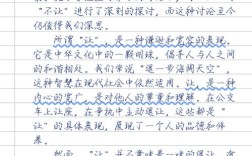 "不让"进行了深刻的探讨，而这种讨论至今
仍值得我们深思。
所谓"让"，是一种谦逊和宽容的表现。
它是中华文化中的一颗明珠，倡导人与人之间
的和谐相处。我们常说"退一步海阔天空"，
这种智慧在现代社会中依然适用。让，是一种
内心的宽广，是对他人的尊重和理解。在公交
车上让座，在争执中主动退让，这些都是"
让"的具体表现，展现了一个人的品德和修
养。
然而，"让"并不意味着一味的退让。在